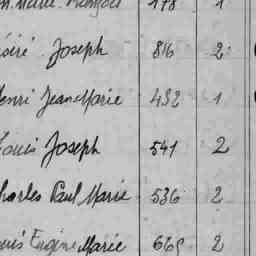 Marie François 178 1
Joseph 816 2
Henri Jean Marie 432 1
Louis Joseph 541 2
Charles Paul Marie 536 2
Louis Eugène Marie 665 2